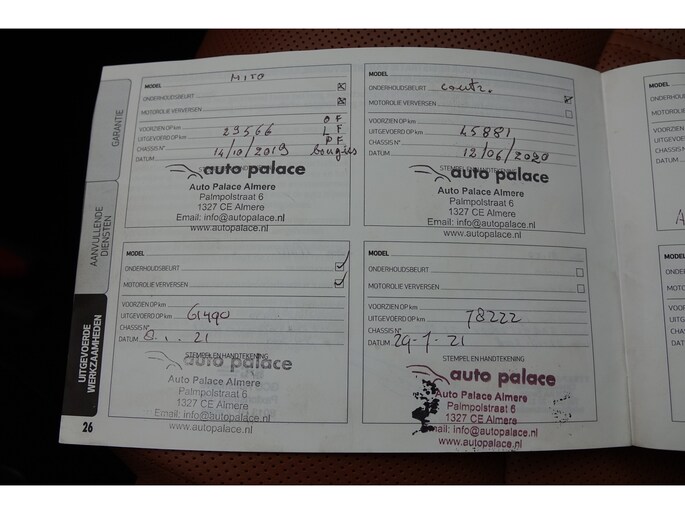 GARANTIE
AANVULLENDE
DIENSTEN
UITGEVOERDE
WERKZAAMHEDEN
26
MITO
MODEL
ONDERHOUDSBEURT
MOTOROLIE VERVERSEN
OF
VOORZIEN OP km
LF
UITGEVOERD OP km 29566
PF
CHASSIS N°
DATUM 14/10/2019 bougies
STEMPEL
auto palace
Auto Palace Almere
Palmpolstraat 6
1327 CE Almere
Email: info@autopalace.nl
www.autopalace.nl
MODEL
ONDERHOUDSBEURT contr.
MOTOROLIE VERVERSEN
VOORZIEN OP km
UITGEVOERD OP km 45881
CHASSIS N°
DATUM 12/06/2020
STEMPEL EN HANDTEKENING
auto palace
Auto Palace Almere
Palmpolstraat 6
1327 CE Almere
Email: info@autopalace.nl
www.autopalace.nl
MODEL
ONDERHOUDSBEURT
MOTOROLIE VERVERSEN
VOORZIEN OP km
UITGEVOERD OP km 61490
CHASSIS N°
DATUM 21
STEMPEL EN HANDTEKENING
auto palace
Auto Palace Almere
Palmpolstraat 6
1327 CE Almere
Email: info@autopalace.nl
www.autopalace.nl
MODEL
ONDERHOUDSBEURT
MOTOROLIE VERVERSEN
VOORZIEN OP km
UITGEVOERD OP km 78222
CHASSIS N°
DATUM 29-7-21
STEMPEL EN HANDTEKENING
auto palace
Auto Palace Almere
Palmpolstraat 6
1327 CE Almere
Email: info@autopalace.nl
www.autopalace.nl
MODEL
ONDERHO
MOTOROL
VOORZIEN
UITGEVOE
CHASSIS N
DATUM
A
MODEL
ONDERHO
MOTOROL
VOORZIEN
UITGEVOE
CHASSIS N
DATUM